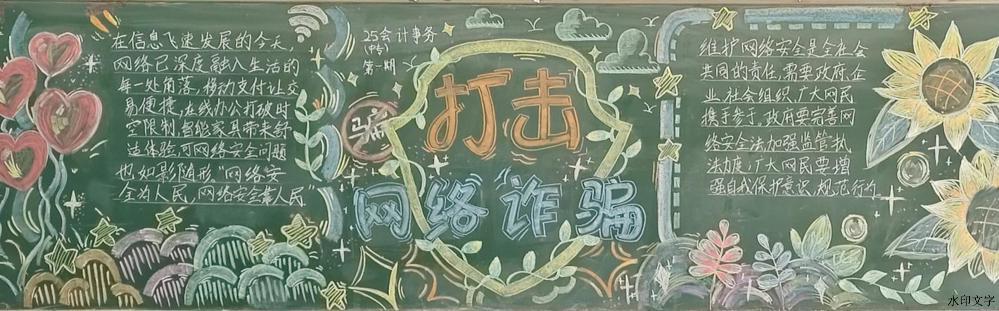 在信息飞速发展的今天,
网络已深度融入生活的
每一处角落,移动支付让交
易便捷,在线办公打破时
空限制,智能家具带来舒
适体验,可网络安全问题
也如影随形,"网络安
全为人民,网络安全靠人民"
25会计事务
(中专)
第一期
骗
打击
网络诈骗
维护网络安全是全社会
共同的责任,需要政府、企
业、社会组织、广大网民
携手参于。政府要完善网
络安全法加强监管执
法力度,广大网民要增
强自我保护意识,规范行为
水印文字